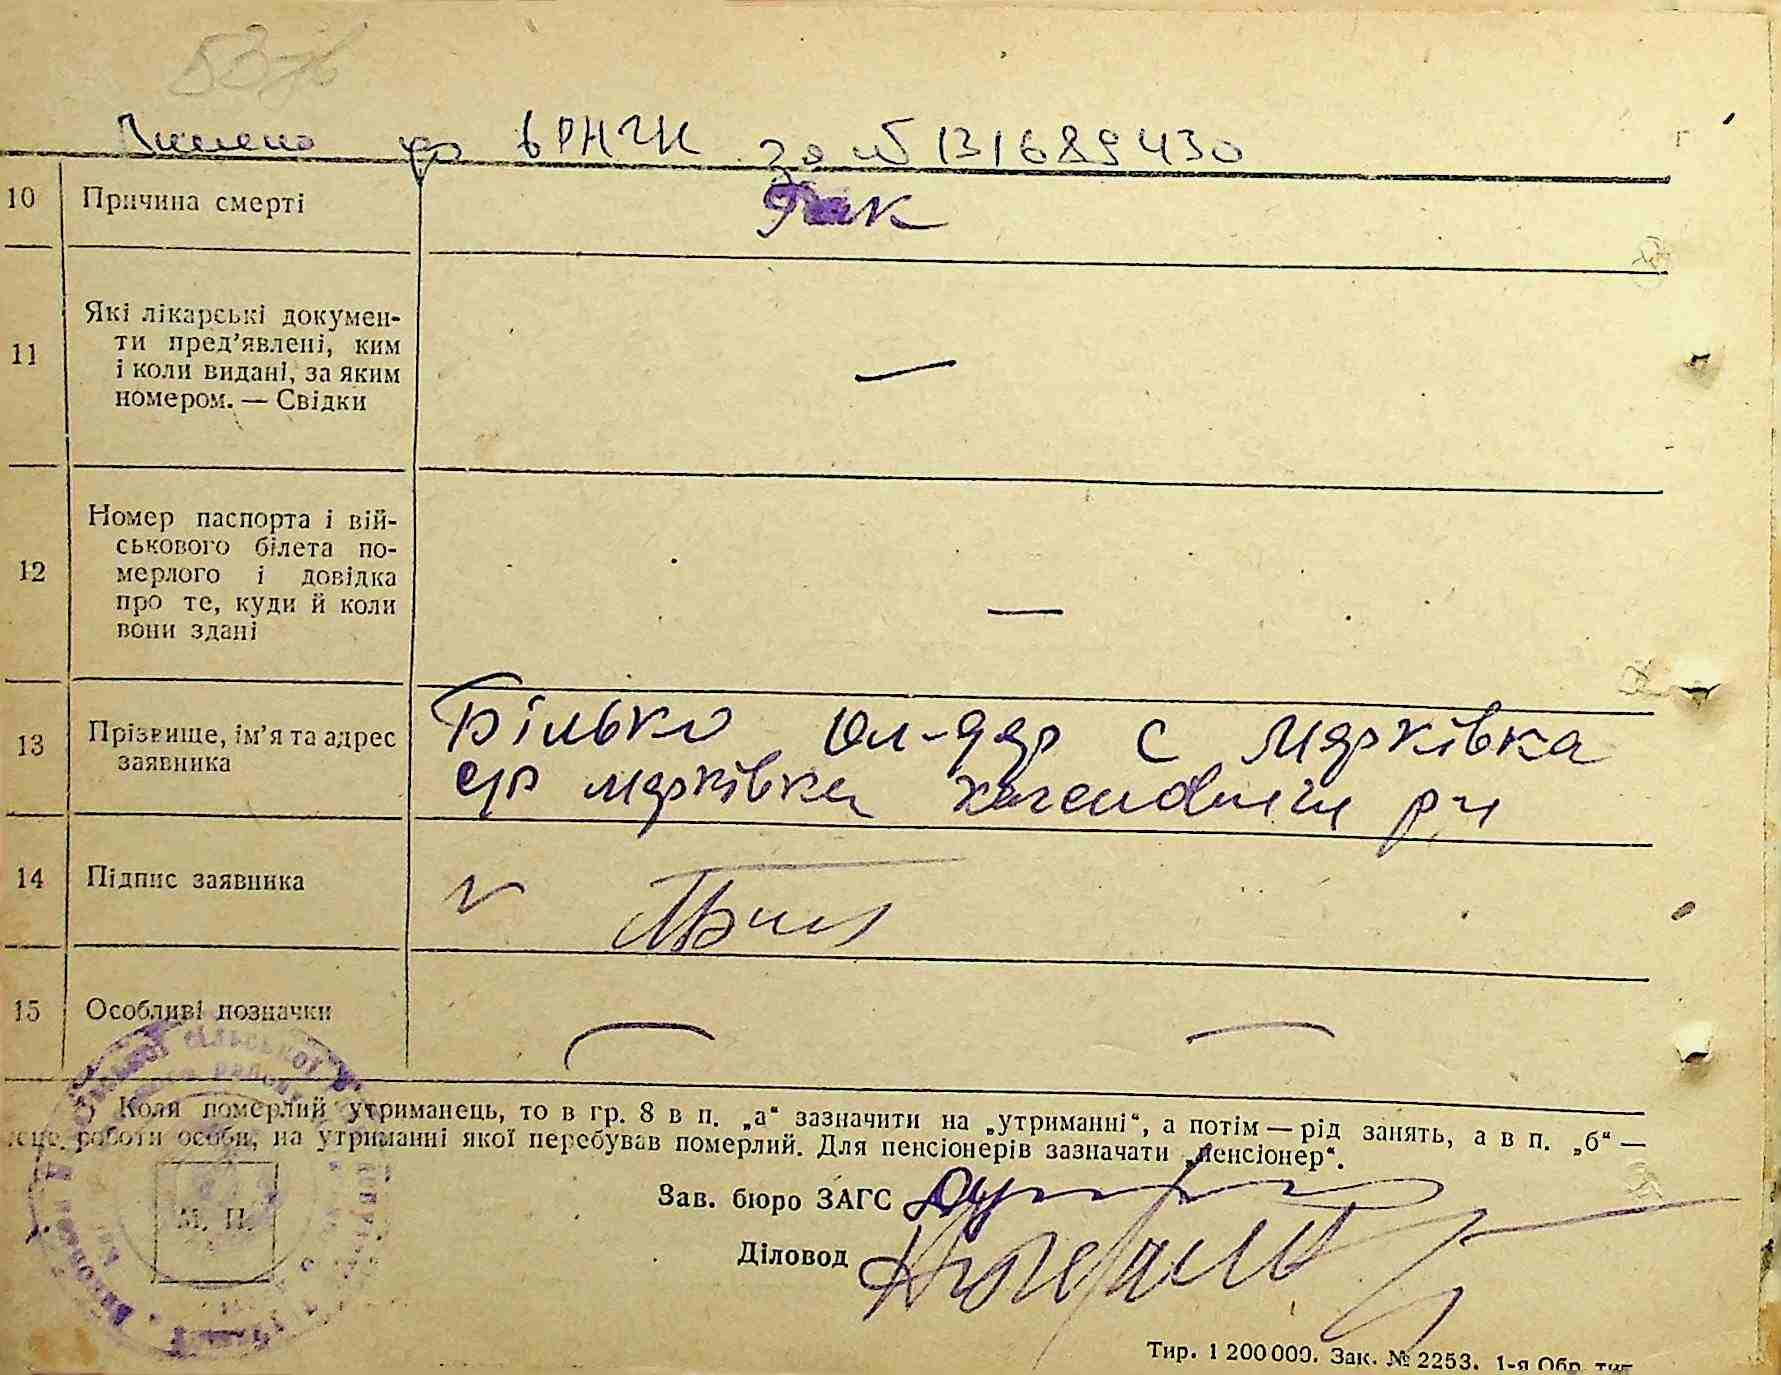 до ВРНЧК за № 131689430
10 Причина смерті Рак
11 Які лікарські докумен-
ти пред'явлені, ким
і коли видані, за яким
номером. — Свідки —
12 Номер паспорта і вій-
ськового білета по-
мерлого і довідка
про те, куди й коли
вони здані —
13 Прізвище, ім'я та адрес
заявника
Білько Ол-др с Марківка
с/р Марківка р-н
14 Підпис заявника
15 Особливі позначки
Коли померлий утриманець, то в гр. 8 в п. „а“ зазначити на „утриманні“, а потім — рід занять, а в п. „б“ —
роботи особи, на утриманні якої перебував померлий. Для пенсіонерів зазначати „пенсіонер“.
Зав. бюро ЗАГС
М. П.
Діловод
Тир. 1 200 000. Зак. № 2253. 1-я Обр. тип